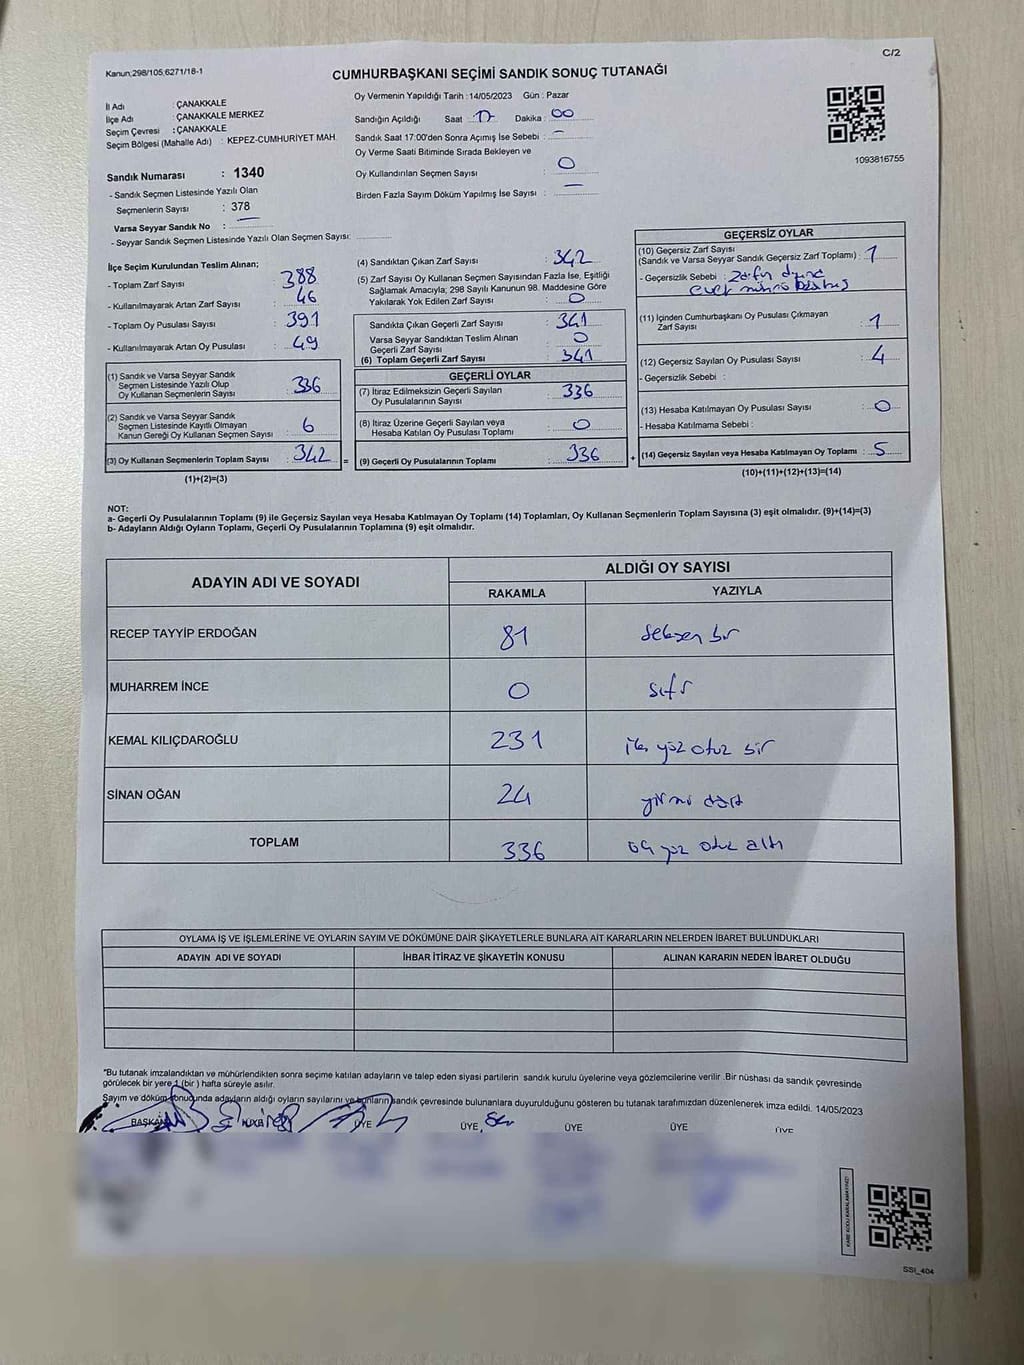 Kanun:298/105;6271/18-1
C/2
CUMHURBAŞKANI SEÇİMİ SANDIK SONUÇ TUTANAĞI
İl Adı : ÇANAKKALE
İlçe Adı : ÇANAKKALE MERKEZ
Seçim Çevresi : ÇANAKKALE
Seçim Bölgesi (Mahalle Adı) : KEPEZ-CUMHURİYET MAH.
Sandık Numarası : 1340
- Sandık Seçmen Listesinde Yazılı Olan
Seçmenlerin Sayısı : 378
Varsa Seyyar Sandık No : —
- Seyyar Sandık Seçmen Listesinde Yazılı Olan Seçmen Sayısı:
Oy Vermenin Yapıldığı Tarih : 14/05/2023 Gün : Pazar
Sandığın Açıldığı Saat : 17 Dakika : 00
Sandık Saat 17:00'den Sonra Açımış İse Sebebi : —
Oy Verme Saati Bitiminde Sırada Bekleyen ve
Oy Kullandırılan Seçmen Sayısı : 0
Birden Fazla Sayım Döküm Yapılmış İse Sayısı : —
1093816755
İlçe Seçim Kurulundan Teslim Alınan;
- Toplam Zarf Sayısı : 388
- Kullanılmayarak Artan Zarf Sayısı : 46
- Toplam Oy Pusulası Sayısı : 391
- Kullanılmayarak Artan Oy Pusulası : 49
(1) Sandık ve Varsa Seyyar Sandık
Seçmen Listesinde Yazılı Olup
Oy Kullanan Seçmenlerin Sayısı : 336
(2) Sandık ve Varsa Seyyar Sandık
Seçmen Listesinde Kayıtlı Olmayan
Kanun Gereği Oy Kullanan Seçmen Sayısı : 6
(3) Oy Kullanan Seçmenlerin Toplam Sayısı : 342 =
(1)+(2)=(3)
(4) Sandıktan Çıkan Zarf Sayısı : 342
(5) Zarf Sayısı Oy Kullanan Seçmen Sayısından Fazla İse, Eşitliği
Sağlamak Amacıyla; 298 Sayılı Kanunun 98. Maddesine Göre
Yakılarak Yok Edilen Zarf Sayısı : 0
Sandıkta Çıkan Geçerli Zarf Sayısı : 341
Varsa Seyyar Sandıktan Teslim Alınan
Geçerli Zarf Sayısı : 0
(6) Toplam Geçerli Zarf Sayısı : 341
GEÇERLİ OYLAR
(7) İtiraz Edilmeksizin Geçerli Sayılan
Oy Pusulalarının Sayısı : 336
(8) İtiraz Üzerine Geçerli Sayılan veya
Hesaba Katılan Oy Pusulası Toplamı : 0
(9) Geçerli Oy Pusulalarının Toplamı : 336 +
GEÇERSİZ OYLAR
(10) Geçersiz Zarf Sayısı
(Sandık ve Varsa Seyyar Sandık Geçersiz Zarf Toplamı) : 1
- Geçersizlik Sebebi :
(11) İçinden Cumhurbaşkanı Oy Pusulası Çıkmayan
Zarf Sayısı : 1
(12) Geçersiz Sayılan Oy Pusulası Sayısı : 4
- Geçersizlik Sebebi :
(13) Hesaba Katılmayan Oy Pusulası Sayısı : 0
- Hesaba Katılmama Sebebi :
(14) Geçersiz Sayılan veya Hesaba Katılmayan Oy Toplamı : 5
(10)+(11)+(12)+(13)=(14)
NOT:
a- Geçerli Oy Pusulalarının Toplamı (9) ile Geçersiz Sayılan veya Hesaba Katılmayan Oy Toplamı (14) Toplamları, Oy Kullanan Seçmenlerin Toplam Sayısına (3) eşit olmalıdır. (9)+(14)=(3)
b- Adayların Aldığı Oyların Toplamı, Geçerli Oy Pusulalarının Toplamına (9) eşit olmalıdır.
ADAYIN ADI VE SOYADI ALDIĞI OY SAYISI
RAKAMLA YAZIYLA
RECEP TAYYİP ERDOĞAN 81 seksen bir
MUHARREM İNCE 0 sıfır
KEMAL KILIÇDAROĞLU 231 iki yüz otuz bir
SİNAN OĞAN 24 yirmi dört
TOPLAM 336 üç yüz otuz altı
OYLAMA İŞ VE İŞLEMLERİNE VE OYLARIN SAYIM VE DÖKÜMÜNE DAİR ŞİKAYETLERLE BUNLARA AİT KARARLARIN NELERDEN İBARET BULUNDUKLARI
ADAYIN ADI VE SOYADI İHBAR İTİRAZ VE ŞİKAYETİN KONUSU ALINAN KARARIN NEDEN İBARET OLDUĞU
"Bu tutanak imzalandıktan ve mühürlendikten sonra seçime katılan adayların ve talep eden siyasi partilerin sandık kurulu üyelerine veya gözlemcilerine verilir .Bir nüshası da sandık çevresinde
görülecek bir yere 1 (bir ) hafta süreyle asılır.
Sayım ve döküm sonucunda adayların aldığı oyların sayılarını ve bunların sandık çevresinde bulunanlara duyurulduğunu gösteren bu tutanak tarafımızdan düzenlenerek imza edildi. 14/05/2023
BAŞKAN ÜYE ÜYE ÜYE ÜYE ÜYE
KARE KODU KARALAMAYINIZ!
SSI_404